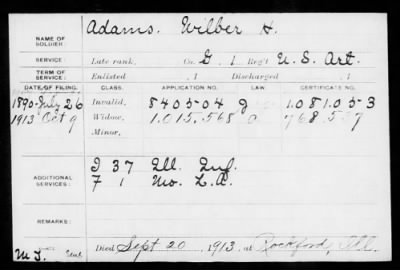 NAME OF SOLDIER: Adams, Wilber H.
SERVICE: Late rank, Co. G, 1 Reg't U.S. Art.
TERM OF SERVICE: Enlisted , 1 Discharged , 1
DATE OF FILING. CLASS. APPLICATION NO. LAW CERTIFICATE NO.
1890-July 26 Invalid, 840504 1081053
1913 Oct 9 Widow, 1.015,568 768.
Minor.
ADDITIONAL SERVICES: I 37 Ill. Inf.
F 1 Mo. L.A.
REMARKS:
Died Sept 20, 1913, at Rockford, Ill.